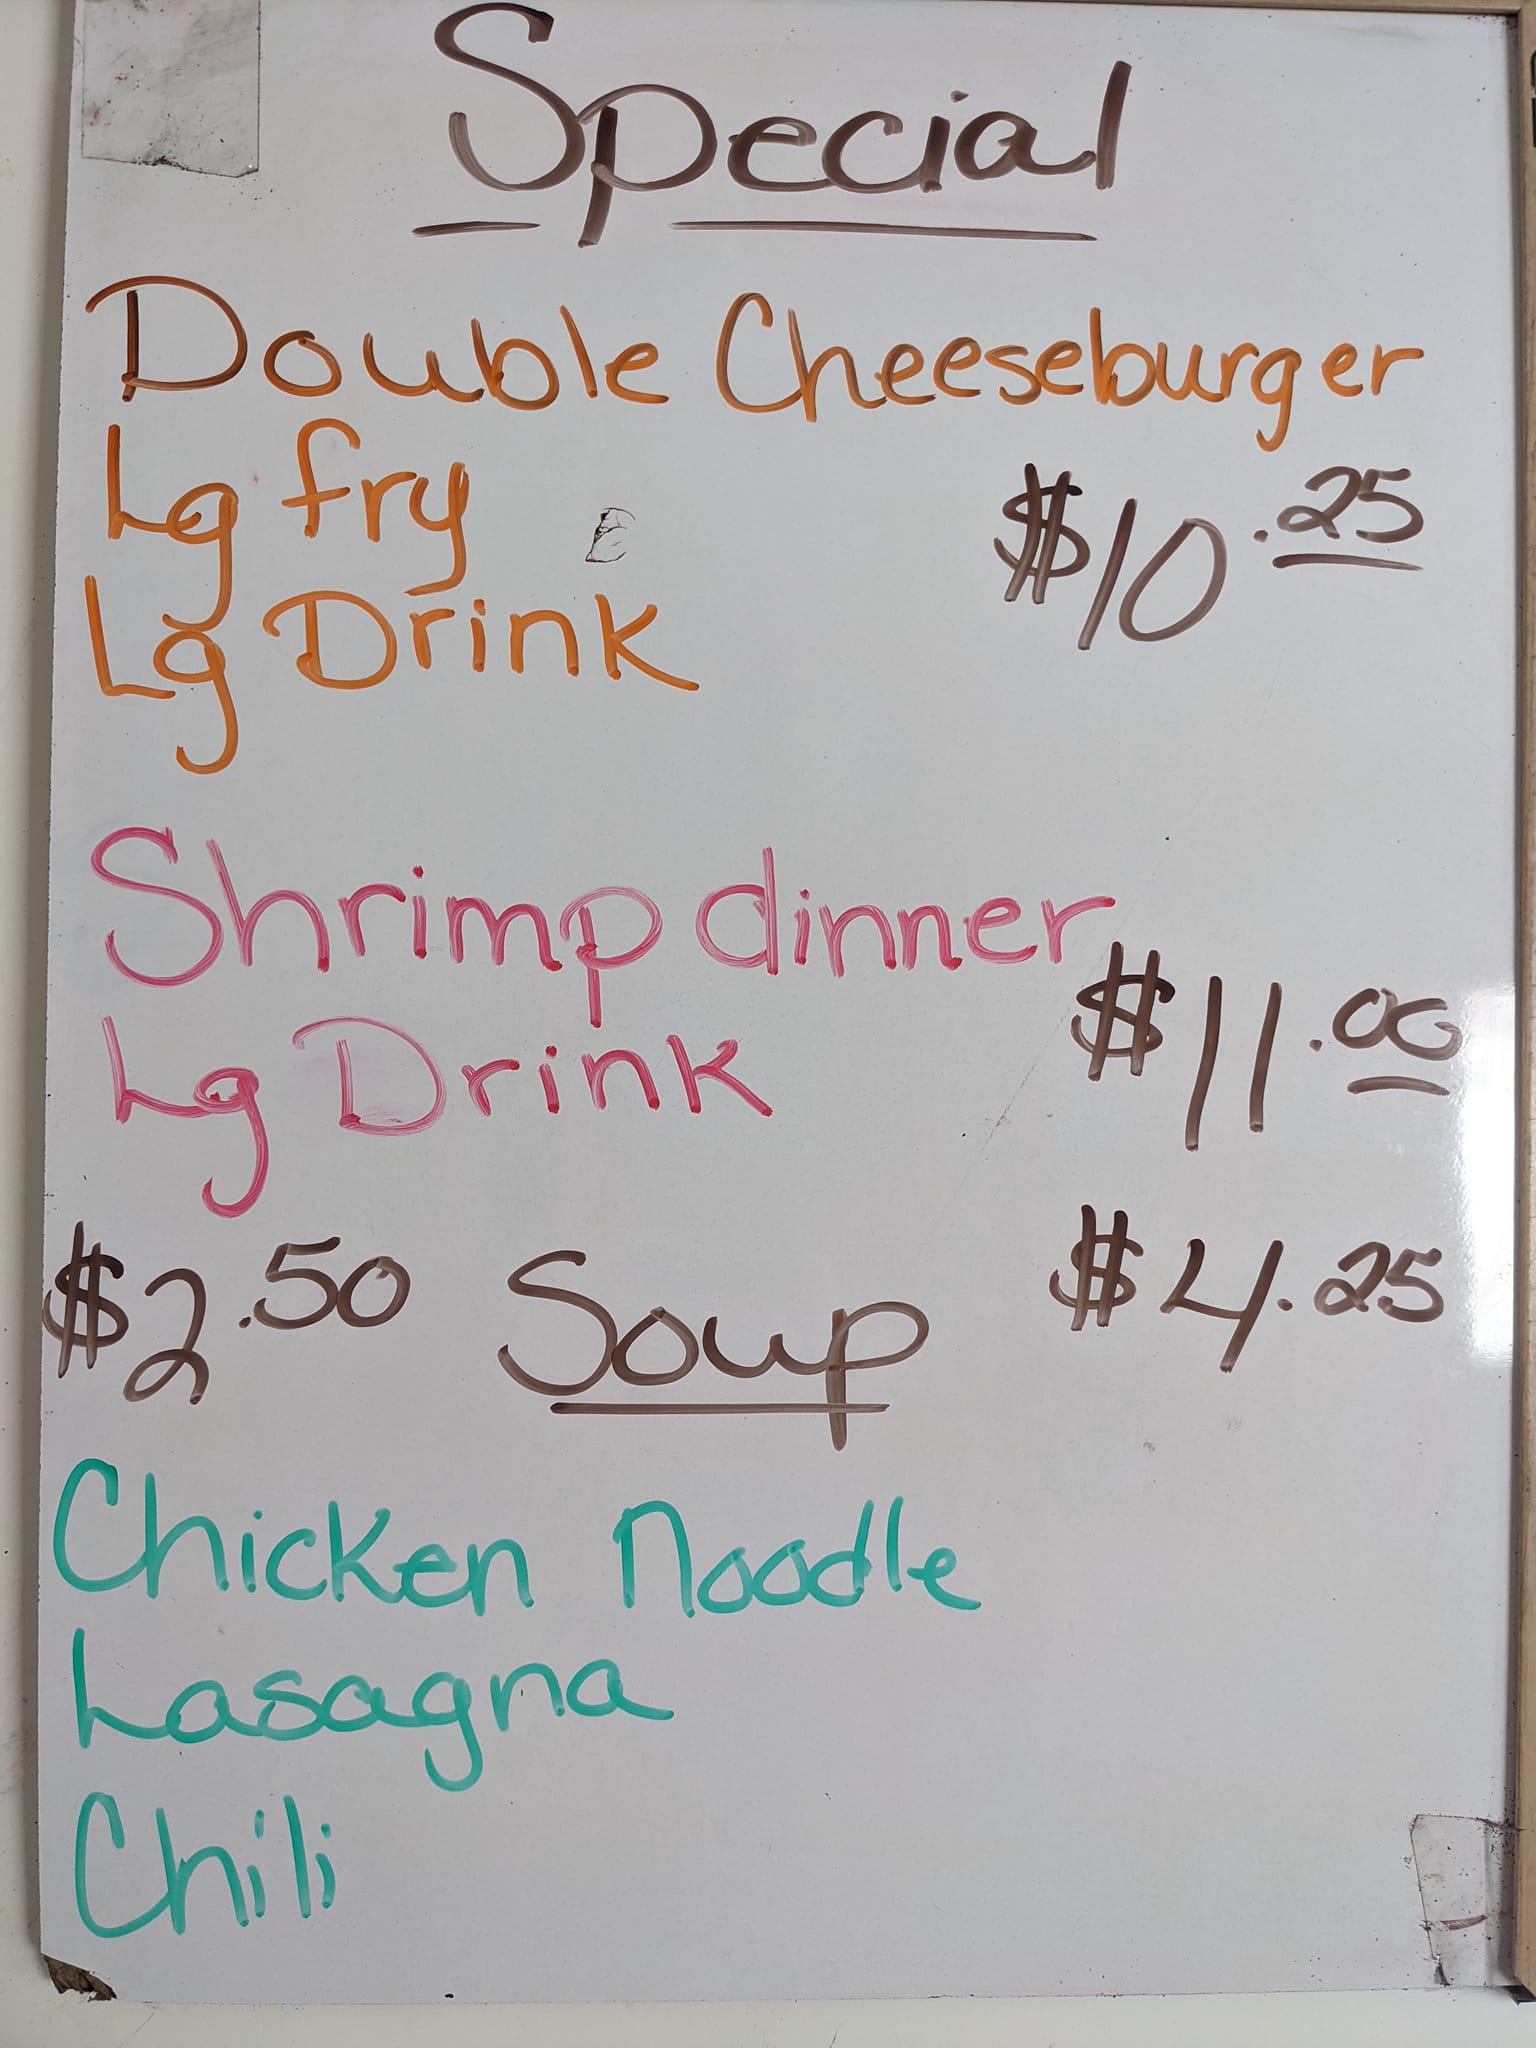 Special
Double Cheeseburger
Lg fry $10.25
Lg Drink
Shrimp dinner
Lg Drink $11.00
$2.50 Soup $4.25
Chicken Noodle
Lasagna
Chili